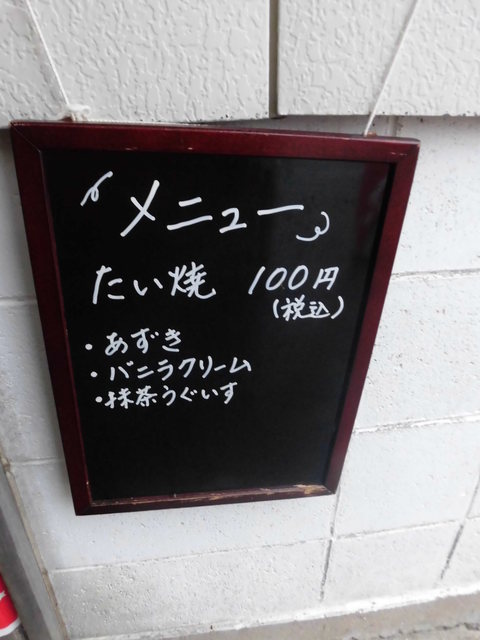 メニュー
たい焼 100円
(税込)
・あずき
・バニラクリーム
・抹茶うぐいす